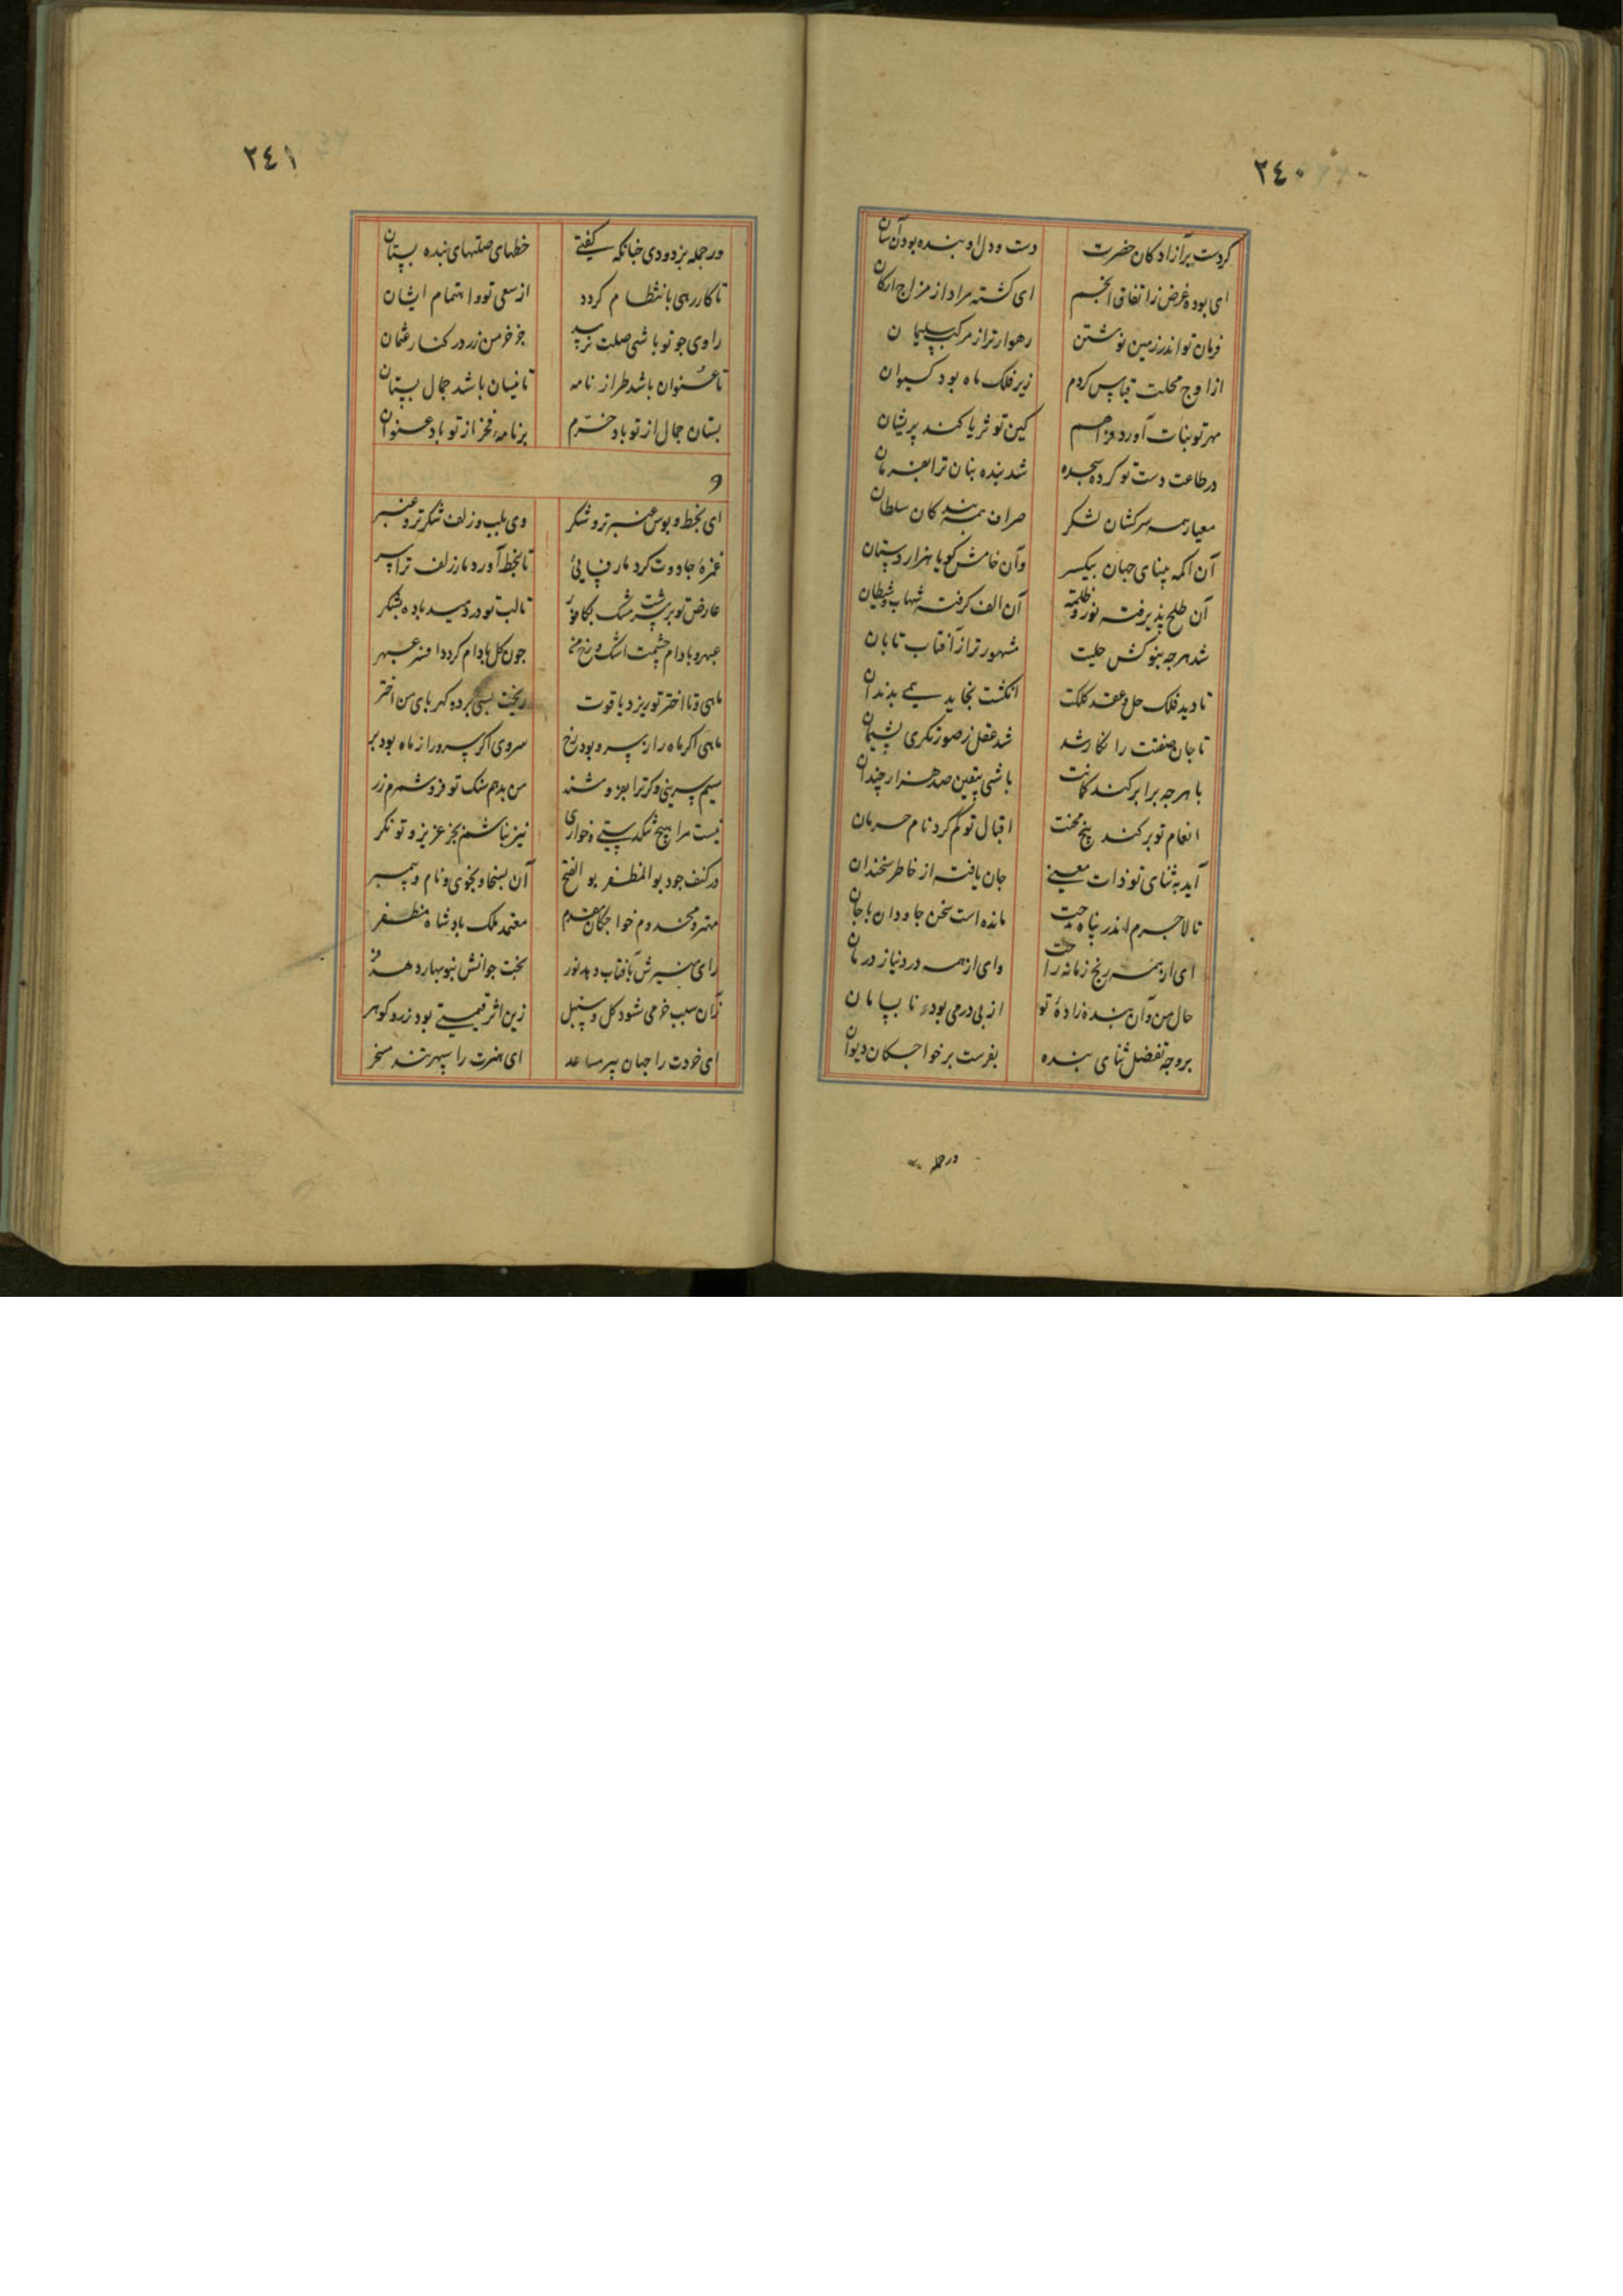 ٢٤٠
کردست پر آزادکان حضرت دست و دل او بنده بود آن سان
ای بوده غرض ز اتفاق انجم ای کشته مراد از مزاج ارکان
فرمان تو اندر زمین نوشتن رهوارتر از مرکب سلیمان
از اوج محلت قیاس کردم زیر فلک ماه بود کیوان
مهر تو بنات آورد فراهم کین تو ثریا کند پریشان
در طاعت دست تو کرده سجده شد بنده بنان ترا بفرمان
معیار همه سرکشان لشکر صراف همه بندکان سلطان
آن اکمه بینای جهان یکسر وآن خامش کویا بهزار دستان
آن طلح پذیرفته نور و ظلمه آن الف کرفته شهاب و شیطان
شد هرجه بنوکش حلیت مشهورتر از آفتاب تابان
تا دید فلک حل و عقد کلکت انکشت بخاید همی بدندان
تا جان صفتت را نکار شد شد عقل ز صورتکری پشیمان
با هرجه برابر کند کمانت باشی بیقین صد هزار چندان
انعام تو بر کند بیخ محنت اقبال تو کم کرد نام حرمان
آید به ثنای تو ذات معینی جان یافته از خاطر سخندان
تا لاجرم اندر پناه مدیحت مانده است سخن جاودان با جان
ای از همه رنج زمانه راحت وای از همه درد نیاز درمان
حال من وآن بنده زادهٔ تو از بی درمی بوده نا بسامان
بر وجه تفضل ثنای بنده بفرست بر خواجکان دیوان
در جمله
٢٤١
در جمله بزدودی جنانکه کفتی خطهای صلتهای بنده بستان
تا کار رهی با نتظام کردد از سعی تو و اهتمام ایشان
راوی جو تو باشی صلت نرسد جز خرمن زر در کنار عثمان
تا عنوان باشد طراز نامه تا نیسان باشد جمال بستان
بستان جمال از تو باد خرم بر نامهٔ فخر از تو باد عنوان
و
ای بخط و بوس عنبر تر و شکر وی بلب و زلف شکر تر و عنبر
غمزهٔ جادوت کرد مار فسایی تا بخط آورد مار زلف ترا سر
عارض تو بر سرشت مشک بکافور تا لب تو در دمید باده بشکر
عبهر و بادام چشمت اشک و رخ من جون کل بادام کردد افسر عبهر
ماهی و تا اختر تو ریزد یاقوت ریخت بسی بر ده کهربای من اختر
ماهی اکر ماه را ز سرو بود رخ سروی اکر سرو را ز ماه بود بر
سیم سرینی و کر ترا بفروشند من بدهم سنک تو فروشم زر
نیست مرا هیچ تنکدستی و خواری نیز نباشم بجز عزیز و توانکر
در کنف جود بو المظفر بو الفتح آن بسخا و بخوی و نام و پیمبر
مهتر و مخدوم خواجکان مقدم معتمد ملک پادشاه مظفر
رای منیرش بآفتاب دهد نور بخت جوانش بنوبهار دهد فر
زان سبب خرمی شود کل و سنبل زین اثر قیمتی بود زر و کوهر
ای خردت را جهان پیر مساعد ای هنرت را سپهر تند مسخر